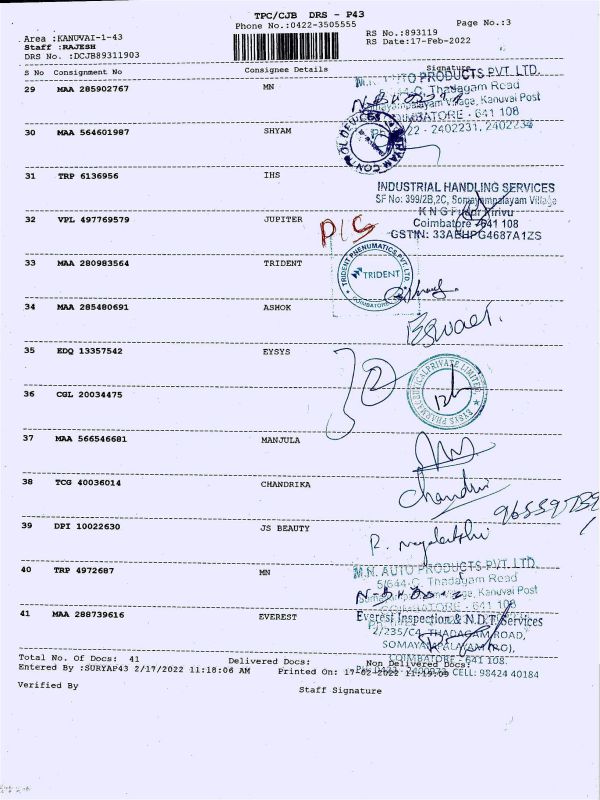 TPC/CJB DRS - P43
Phone No.:0422-3505555
Page No.:3
Area :KANUVAI-1-43
RS No.:893119
Staff :RAJESH
RS Date:17-Feb-2022
DRS No. :DCJB89311903
S No Consignment No Consignee Details Signature
29 MAA 285902767 MN
M.N. AUTO PRODUCTS PVT. LTD.
5/644-C, Thadagam Road
Somayampalayam Village, Kanuvai Post
COIMBATORE - 641 108
PH: 0422 - 2402231, 2402234
30 MAA 564601987 SHYAM
SHYAM CONTROL DEVICES
31 TRP 6136956 IHS
INDUSTRIAL HANDLING SERVICES
SF No: 399/2B,2C, Somayampalayam Village
K N G Pudur Pirivu
Coimbatore - 641 108
GSTIN: 33AEHPG4687A1ZS
32 VPL 497769579 JUPITER
33 MAA 280983564 TRIDENT
TRIDENT PNEUMATICS PVT. LTD.
TRIDENT
COIMBATORE
34 MAA 285480691 ASHOK
35 EDQ 13357542 EYSYS
EYSYS PHARMACEUTICAL PRIVATE LIMITED
36 CGL 20034475
37 MAA 566546681 MANJULA
38 TCG 40036014 CHANDRIKA
39 DPI 10022630 JS BEAUTY
40 TRP 4972687 MN
M.N. AUTO PRODUCTS PVT. LTD.
5/644-C, Thadagam Road
Somayampalayam Village, Kanuvai Post
COIMBATORE - 641 108
41 MAA 288739616 EVEREST
Everest Inspection & N.D.T. Services
2/235/C4, THADAGAM ROAD,
SOMAYAMPALAYAM (PO),
COIMBATORE - 641 108.
CELL: 98424 40184
Total No. Of Docs: 41 Delivered Docs: Non Delivered Docs:
Entered By :SURYAP43 2/17/2022 11:18:06 AM Printed On: 17-02-2022 11:19:09
Verified By Staff Signature